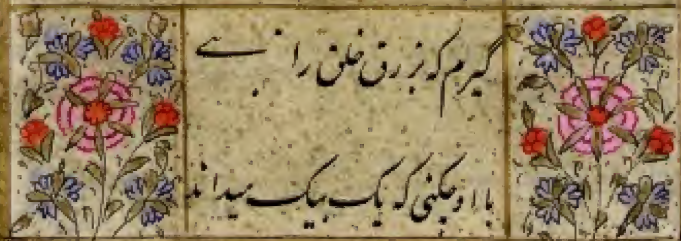 گیرم که بزرق خلق را
با او چکنی که یک بیک میداند